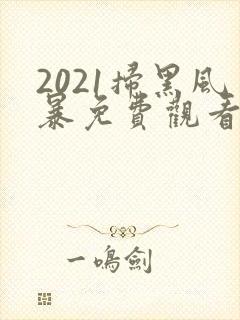 2021掃黑风
暴免費觀看
一鳴劍